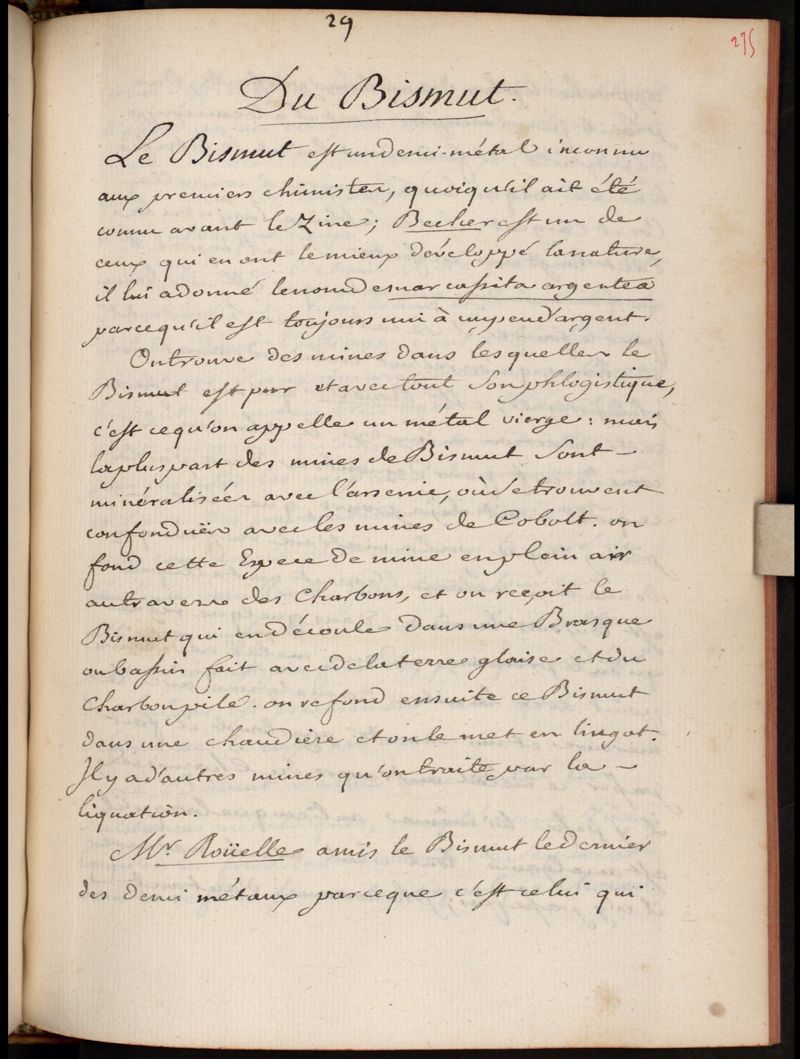 29
275
Du Bismut.
Le Bismut est un demi-métal inconnu
aux premiers chimistes, quoiqu'il ait été
connu avant le Zinc; Becher est un de
ceux qui en ont le mieux développé la nature,
il lui a donné le nom de marcassita argentea
parcequ'il est toujours uni à un peu d'argent.
On trouve des mines dans lesquelles le
Bismut est pur et avec tout son phlogistique,
c'est ce qu'on appelle un métal vierge: mais
la plus part des mines de Bismut sont
minéralisées avec l'arsenic, où se trouvent
confonduës avec les mines de Cobolt. on
fond cette Espece de mine en plein air
au travers des Charbons, et on reçoit le
Bismut qui en découle dans une Brasque
ou bassin fait avec de la terre glaise et du
Charbon pilé. on refond ensuite ce Bismut
dans une chaudiére et on le met en lingot.
Il y a d'autres mines qu'on traite par la
liquation.
Mr. Roüelle a mis le Bismut le dernier
des demi métaux parceque c'est celui qui